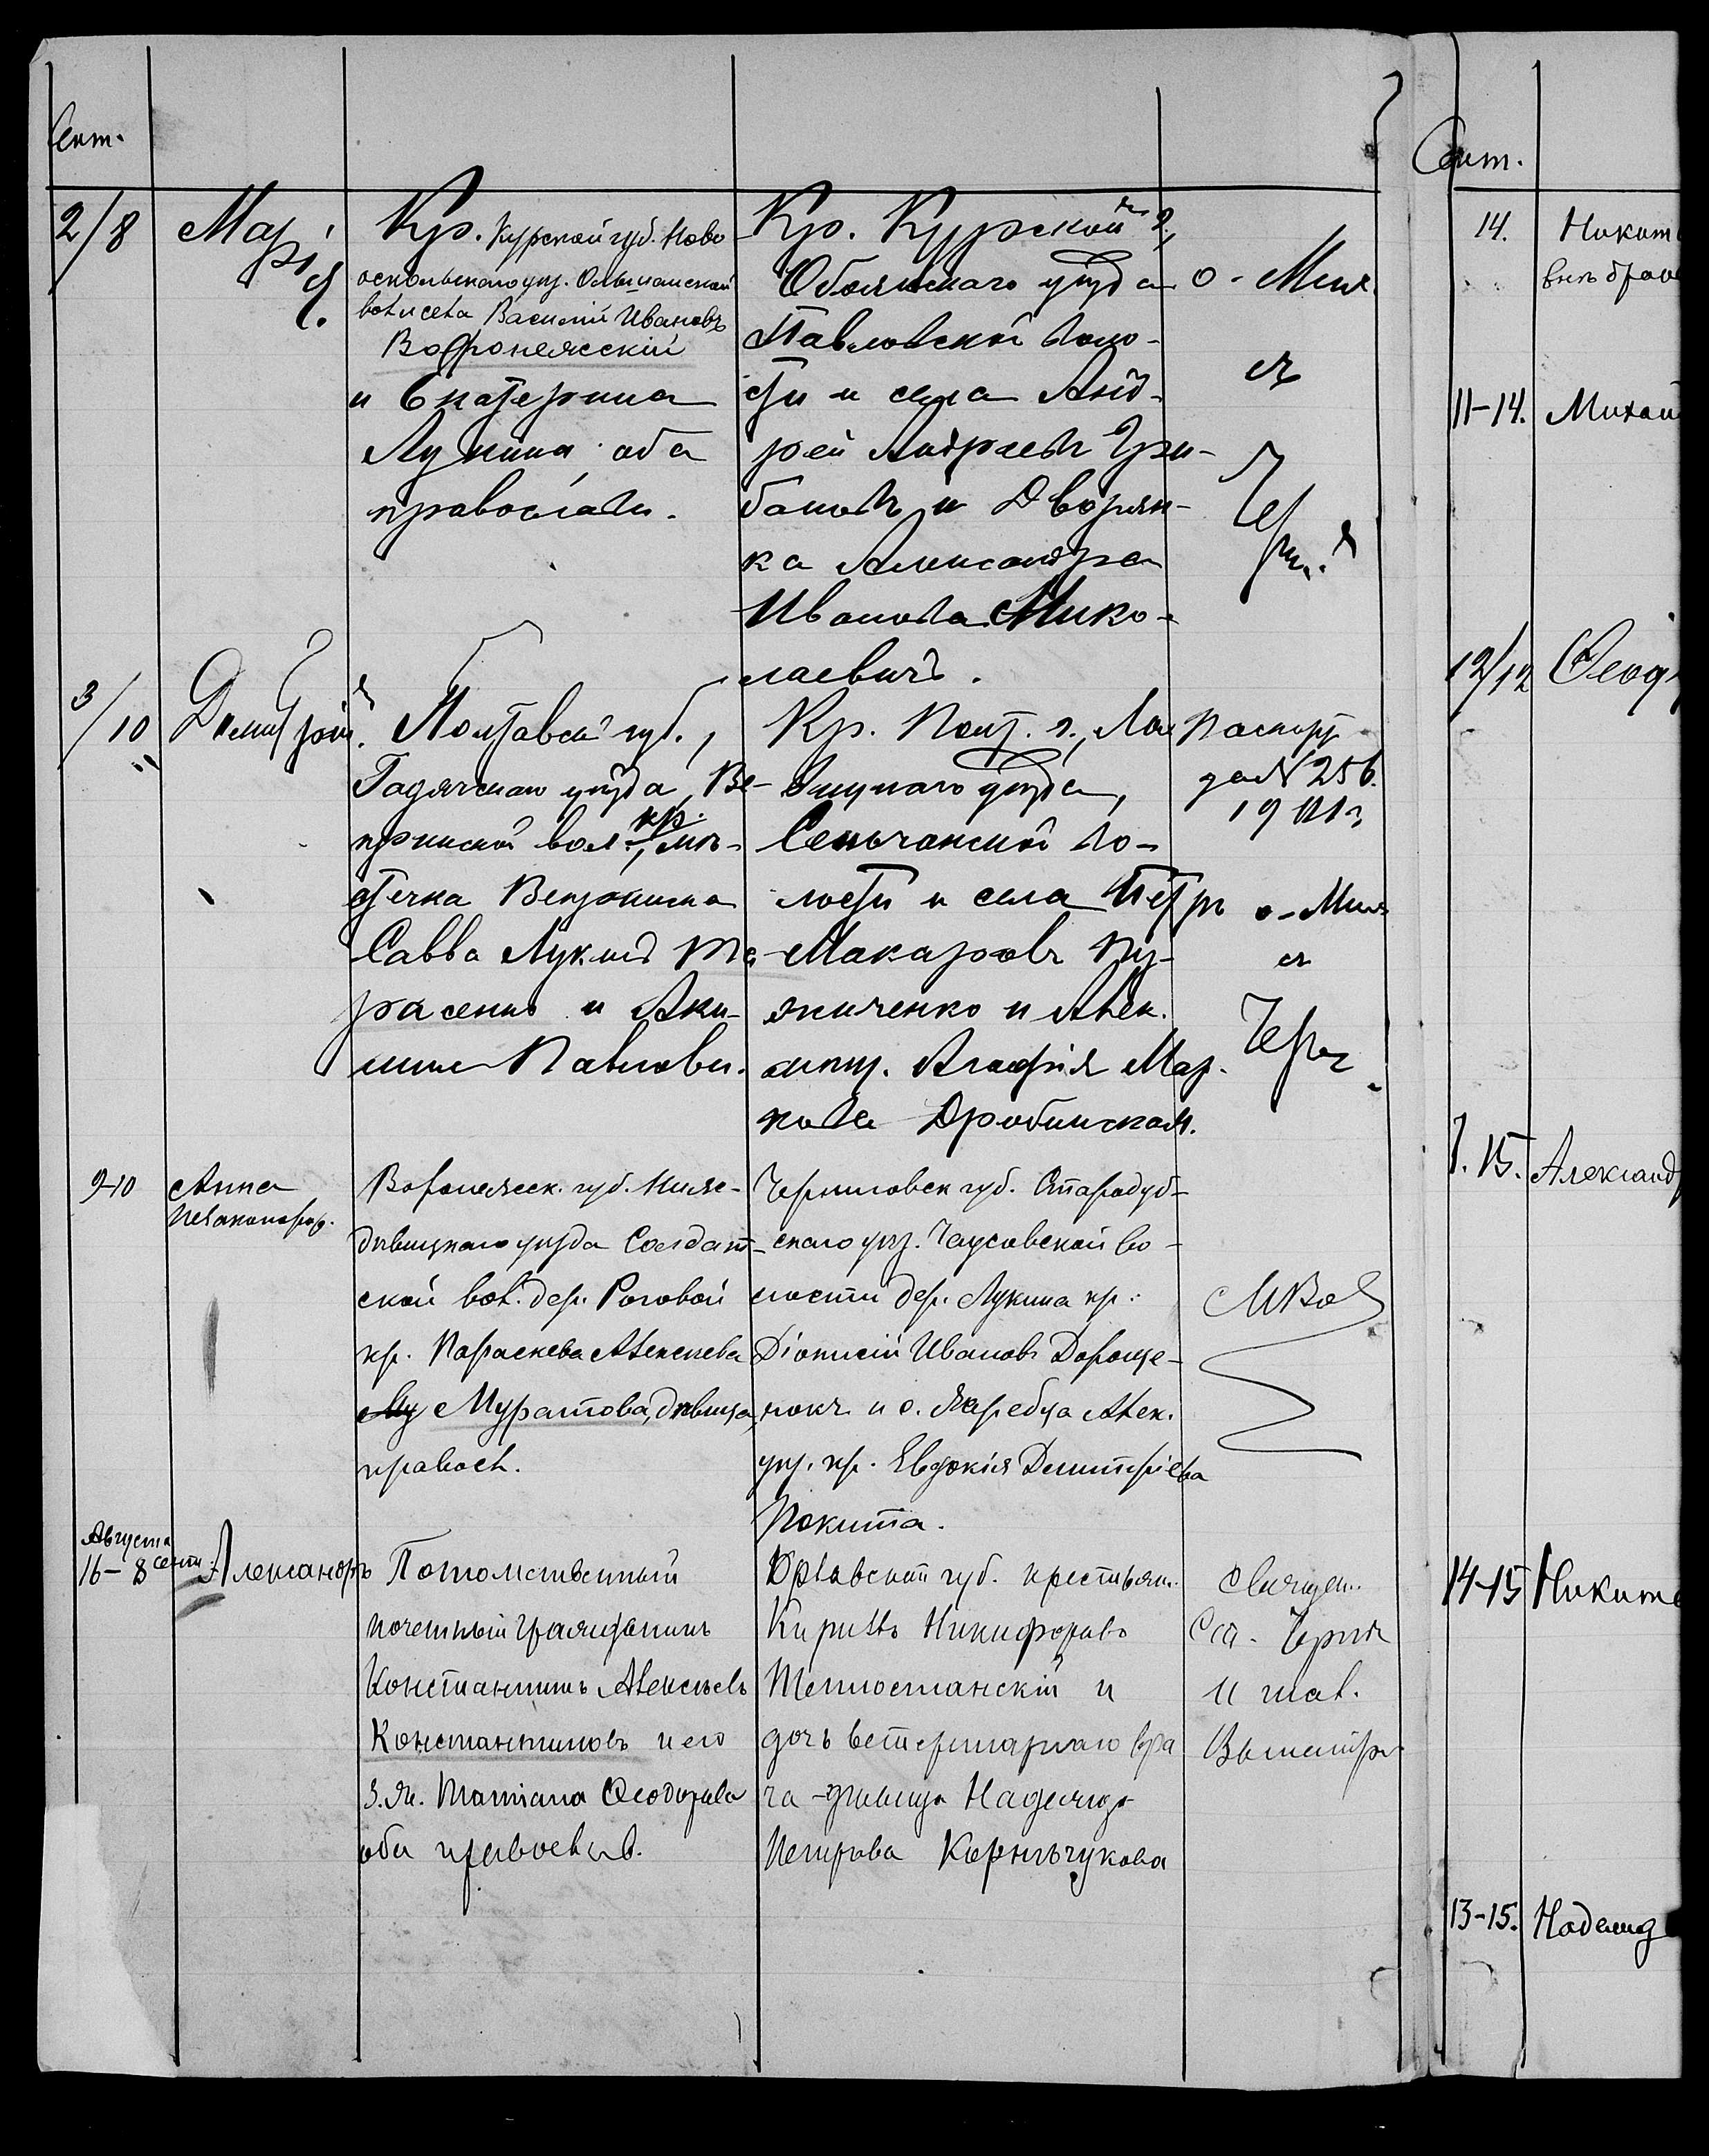 Сент.
2/8
Марія.
Кр. Курской губ. Ново
оскольскаго уѣз. Ольшанской
вол. и села Василій Ивановъ
Воронежскій
и Екатерина
Лукина оба
православн.
Кр. Курской г.,
Обоянскаго уѣзда
Павловской воло-
сти и села Анд-
рей Андреевъ Гри-
бановъ и Дворян-
ка Александра
Иванова Нико-
лаевичъ.
3/10
Димитрій.
Полтавск. губ.,
Гадячскаго уѣзда, Ве-
прикской вол., кр. мѣ-
стечка Веприка
Савва Лукинъ Та-
расенко и Аки-
лина Павлова.
Кр. Полт. г., Ло-
хвицкаго уѣзда,
Сенчанской во-
лости и села Петръ
Макаровъ
и Алек.
Агафія Мар-
кова Дробинская.
Паспортъ
за № 256.
19
9-10
Анна
незаконорож.
Воронежск. губ. Ниже-
дѣвицкаго уѣзда Солдат-
ской вол. дер. Роговой
кр. Параскева Алексѣева
Му Муратова, дѣвица,
правосл.
Черниговск губ. Стародуб-
скаго уѣз. Чаусовской во-
лости дер. Лукина кр.
Діонисій Ивановъ Дороще-
нокъ и о. Жеребца Алек.
уѣз. кр. Евдокія Димитріева
Покита.
Августа
16-8 сент.
Александръ
Потомственный
почетный гражданинъ
Константинъ Алексѣевъ
Константиновъ и его
з. ж. Татіана Ѳеодорова
оба православ.
Орловской губ. крестьян.
Кириллъ Никифоровъ
Теплостанскій и
дочь ветеринарнаго вра
ча -дѣвица Надежда
Петрова Корничукова
Священ.
Сент.
14.
Никит
внѣ брач
11-14.
Михаи
12/12
Ѳеод
15.
Александ
14-15
Никит
13-15.
Надежд